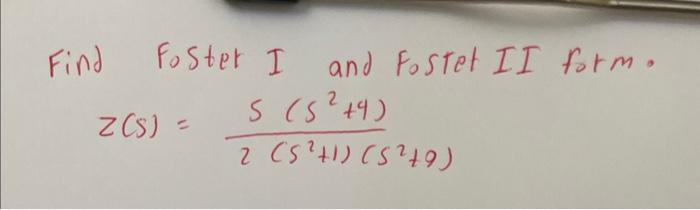 Find Foster I and Foster II form.
Z(S) = S (S²+4)
2 (S²+1) (S²+9)